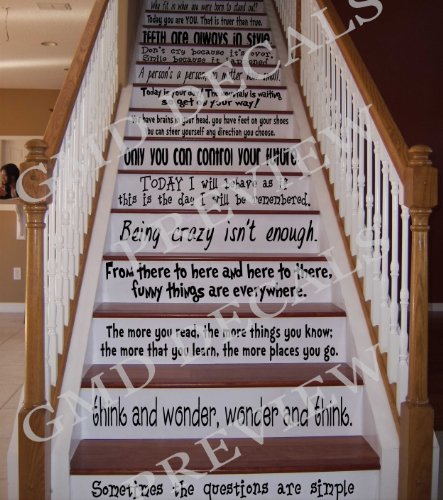 Why fit in when you were born to stand out?
Today you are YOU. That is truer than true.
TEETH are always in style
Don't cry because it's over.
Smile because it happened.
A person's a person, no matter how small.
Today is your day! The mountain is waiting
so get on your way!
You have brains in your head, you have feet on your shoes
You can steer yourself any direction you choose.
Only you can control your future
TODAY I will behave as if
this is the day I will be remembered.
Being crazy isn't enough.
From there to here and here to there,
funny things are everywhere.
The more you read, the more things you know;
the more that you learn, the more places you go.
think and wonder, wonder and think.
Sometimes the questions are simple
GMD DECALS
PREVIEW
GMD DECALS
PREVIEW
GMD DECALS
PREVIEW